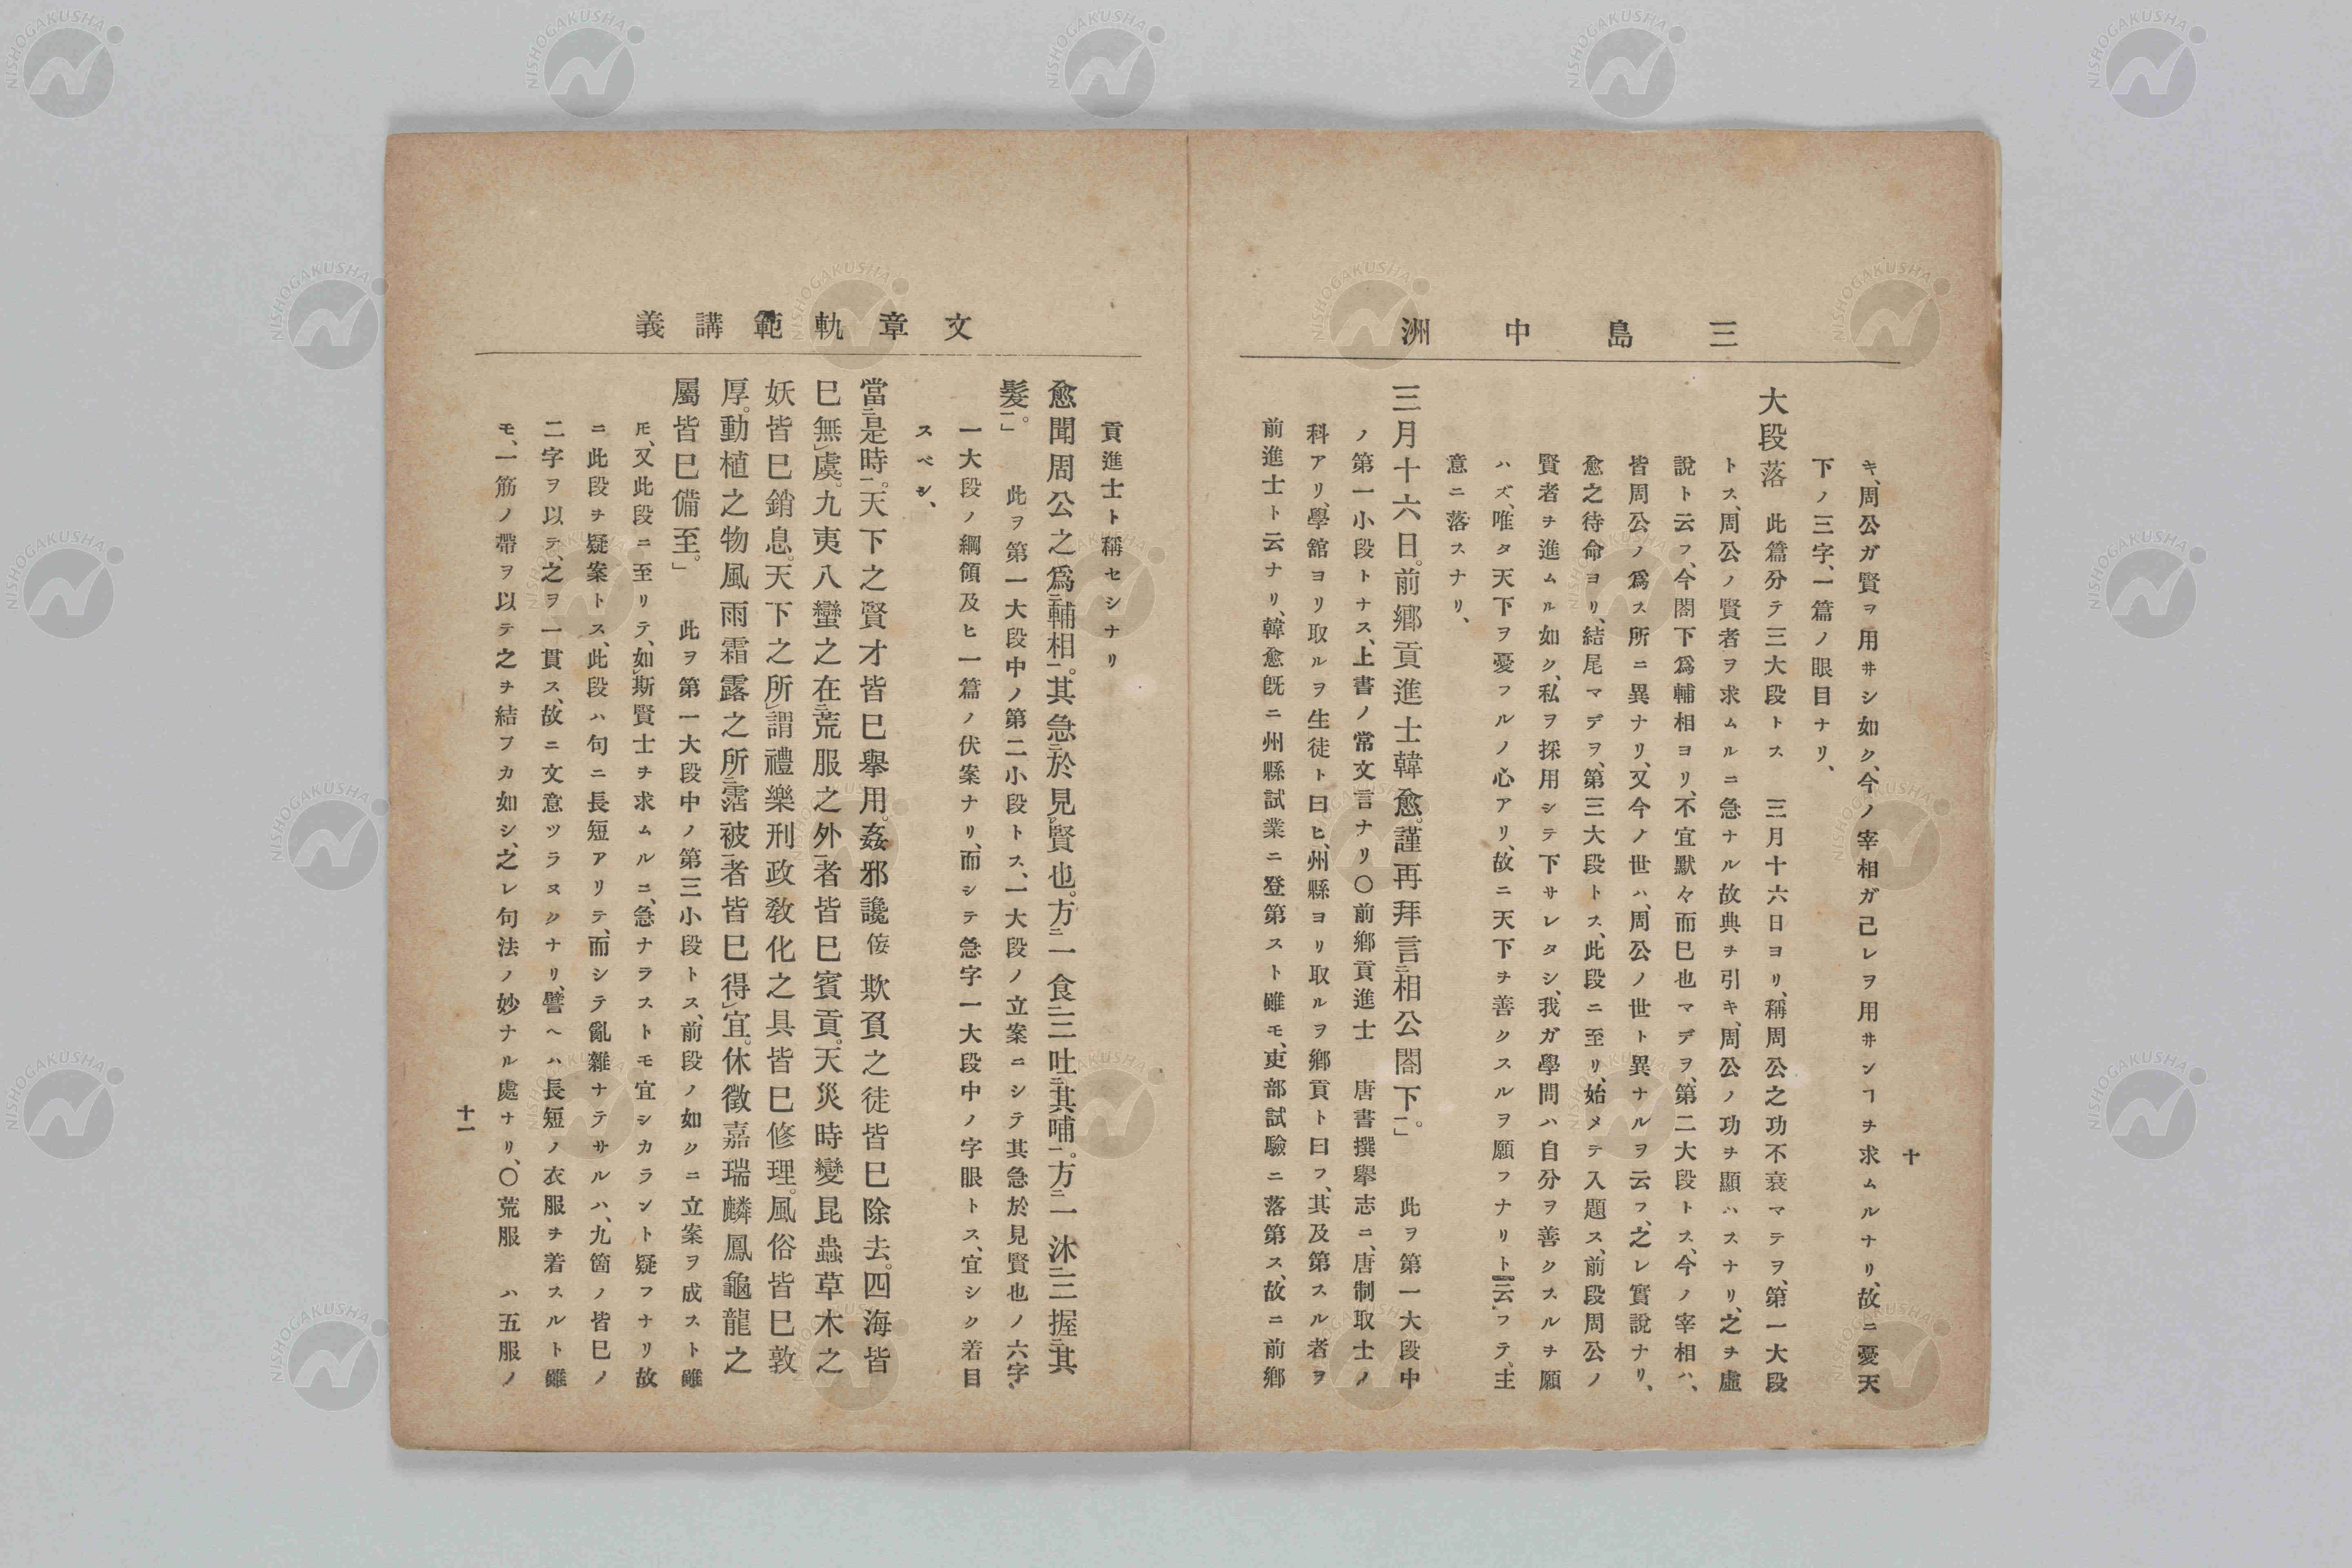 三島中洲
キ、周公ガ賢ヲ用ヰシ如ク、今ノ宰相ガ己レヲ用ヰンヿヲ求ムルナリ、故ニ憂天
下ノ三字、一篇ノ眼目ナリ、
大段落 此篇分テ三大段トス 三月十六日ヨリ、稱周公之功不衰マテヲ、第一大段
トス、周公ノ賢者ヲ求ムルニ急ナル故典ヲ引キ、周公ノ功ヲ顯ハスナリ、之ヲ虛
說ト云フ、今閤下爲輔相ヨリ、不宜默々而已也マデヲ、第二大段トス、今ノ宰相ハ、
皆周公ノ爲ス所ニ異ナリ、又今ノ世ハ、周公ノ世ト異ナルヲ云フ、之レ實說ナリ、
愈之待命ヨリ、結尾マデヲ、第三大段トス、此段ニ至リ、始メテ入題ス、前段周公ノ
賢者ヲ進ムル如ク、私ヲ採用シテ下サレタシ、我ガ學問ハ自分ヲ善クスルヲ願
ハズ、唯タ天下ヲ憂フルノ心アリ、故ニ天下ヲ善クスルヲ願フナリト云フテ、主
意ニ落スナリ、
三月十六日。前鄕貢進士韓愈。謹再拜言二相公閤下一。」 此ヲ第一大段中
ノ第一小段トナス、上書ノ常文言ナリ〇前鄕貢進士 唐書撰擧志ニ、唐制取士ノ
科アリ、學舘ヨリ取ルヲ生徒ト曰ヒ、州縣ヨリ取ルヲ鄕貢ト曰フ、其及第スル者ヲ
前進士ト云ナリ、韓愈旣ニ州縣試業ニ登第スト雖モ、吏部試驗ニ落第ス、故ニ前鄕
十
文章軌範講義
貢進士ト稱セシナリ
愈聞周公之爲二輔相一。其急二於見一レ賢也。方二一食三吐二其哺一。方二一沐三握二其
髮一。」 此ヲ第一大段中ノ第二小段トス、一大段ノ立案ニシテ其急於見賢也ノ六字、
一大段ノ綱領及ヒ一篇ノ伏案ナリ、而シテ急字一大段中ノ字眼トス、宜シク着目
スベシ、
當二是時一。天下之賢才皆已擧用。姦邪讒佞欺負之徒皆已除去。四海皆
已無レ虞。九夷八蠻之在二荒服之外一者皆已賓貢。天災時變昆蟲草木之
妖皆已銷息。天下之所レ謂禮樂刑政敎化之具皆已修理。風俗皆已敦
厚。動植之物風雨霜露之所二霑被一者皆已得レ宜。休徵嘉瑞麟鳳龜龍之
屬皆已備至。」 此ヲ第一大段中ノ第三小段トス、前段ノ如クニ立案ヲ成スト雖
𪜈、又此段ニ至リテ、如レ斯賢士ヲ求ムルニ、急ナラストモ宜シカラント疑フナリ故
ニ此段ヲ疑案トス、此段ハ句ニ長短アリテ、而シテ亂雜ナラサルハ、九箇ノ皆已ノ
二字ヲ以テ、之ヲ一貫ス、故ニ文意ツラヌクナリ、譬ヘハ長短ノ衣服ヲ着スルト雖
モ、一筋ノ帶ヲ以テ之ヲ結フカ如シ、之レ句法ノ妙ナル處ナリ、〇荒服 ハ五服ノ
十一